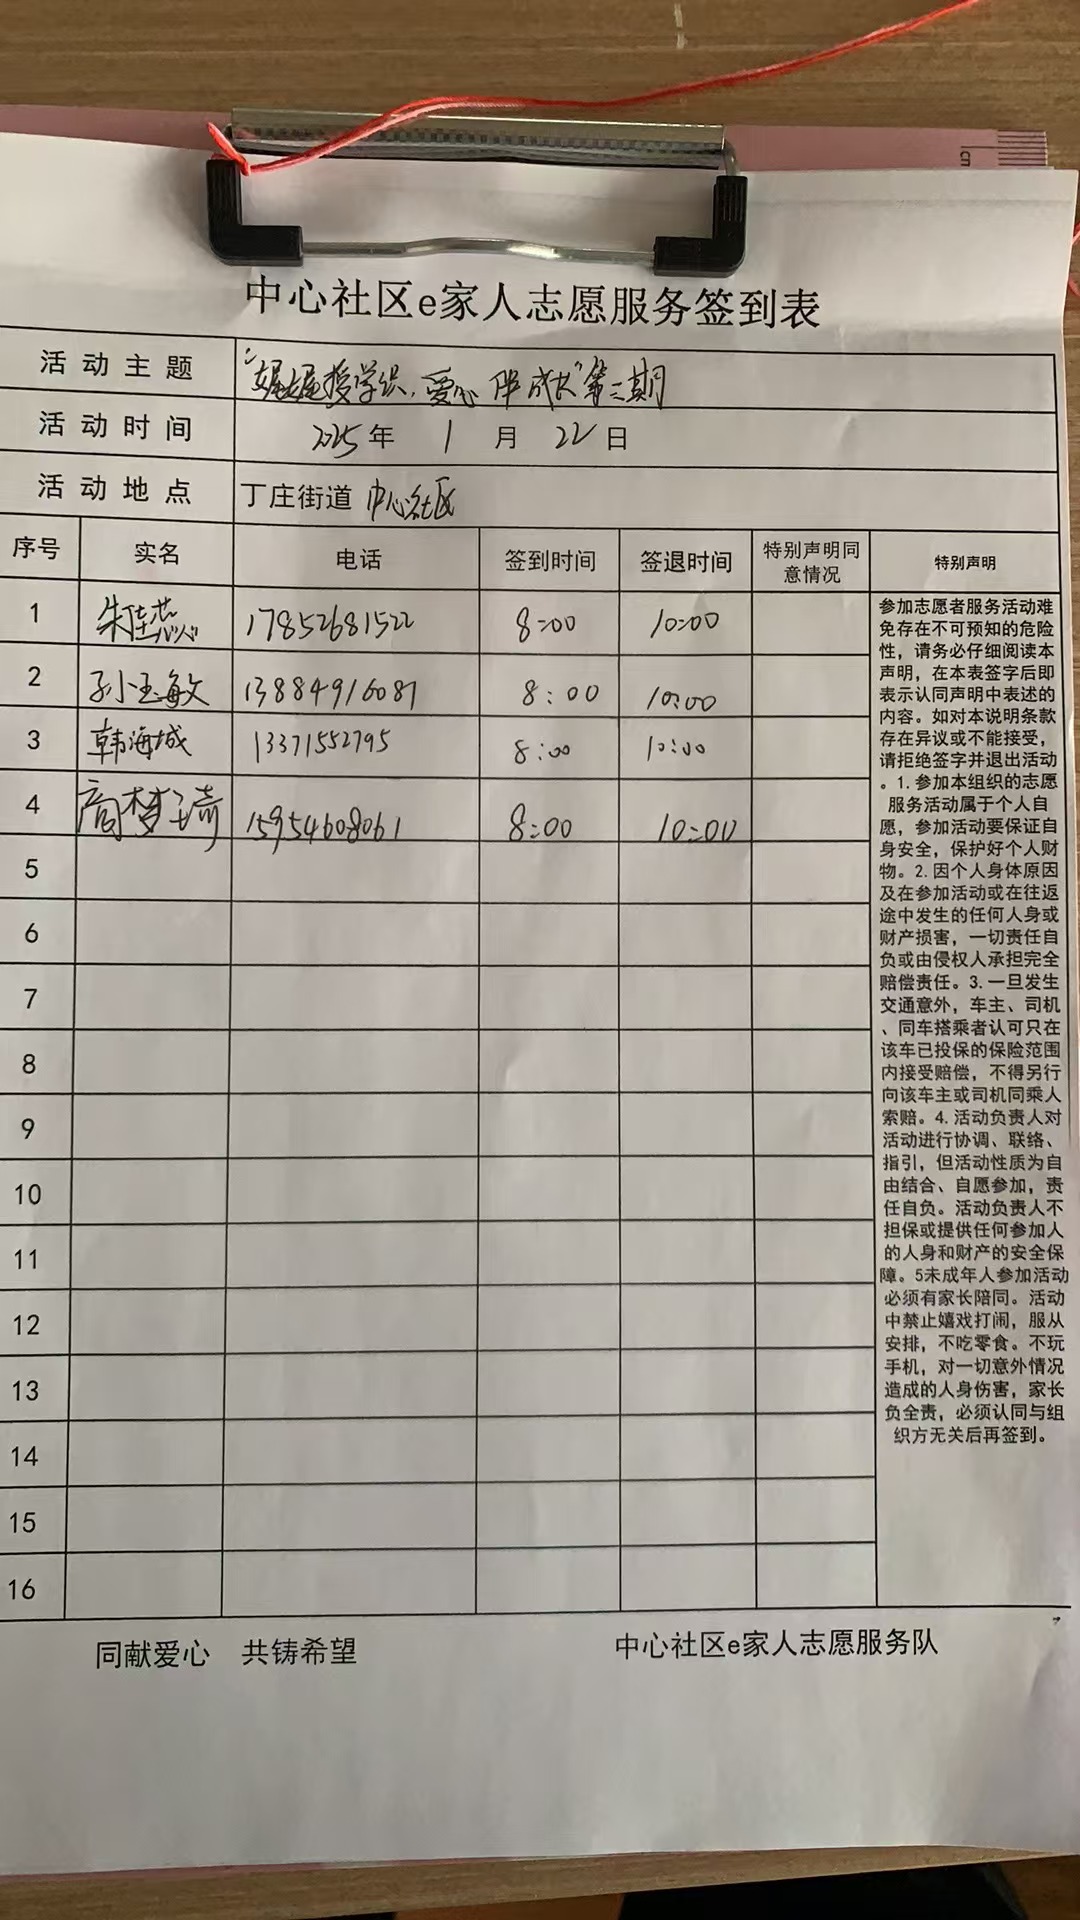 中心社区e家人志愿服务签到表
活动主题 "娓娓授学识，爱心伴成长"第三期
活动时间 2025年 1 月 22 日
活动地点 丁庄街道 中心社区
序号 实名 电话 签到时间 签退时间 特别声明同意情况 特别声明
1 朱佳蕊 17852681522 8:00 10:00
2 孙玉敏 13884916081 8:00 10:00
3 韩海城 13371552795 8:00 10:00
4 商梦琦 15954608061 8:00 10:00
5
6
7
8
9
10
11
12
13
14
15
16
参加志愿者服务活动难
免存在不可预知的危险
性，请务必仔细阅读本
声明，在本表签字后即
表示认同声明中表述的
内容。如对本说明条款
存在异议或不能接受，
请拒绝签字并退出活动
。1.参加本组织的志愿
服务活动属于个人自
愿，参加活动要保证自
身安全，保护好个人财
物。2.因个人身体原因
及在参加活动或在往返
途中发生的任何人身或
财产损害，一切责任自
负或由侵权人承担完全
赔偿责任。3.一旦发生
交通意外，车主、司机
、同车搭乘者认可只在
该车已投保的保险范围
内接受赔偿，不得另行
向该车主或司机同乘人
索赔。4.活动负责人对
活动进行协调、联络、
指引，但活动性质为自
由结合、自愿参加，责
任自负。活动负责人不
担保或提供任何参加人
的人身和财产的安全保
障。5未成年人参加活动
必须有家长陪同。活动
中禁止嬉戏打闹，服从
安排，不吃零食。不玩
手机，对一切意外情况
造成的人身伤害，家长
负全责，必须认同与组
织方无关后再签到。
同献爱心 共铸希望 中心社区e家人志愿服务队